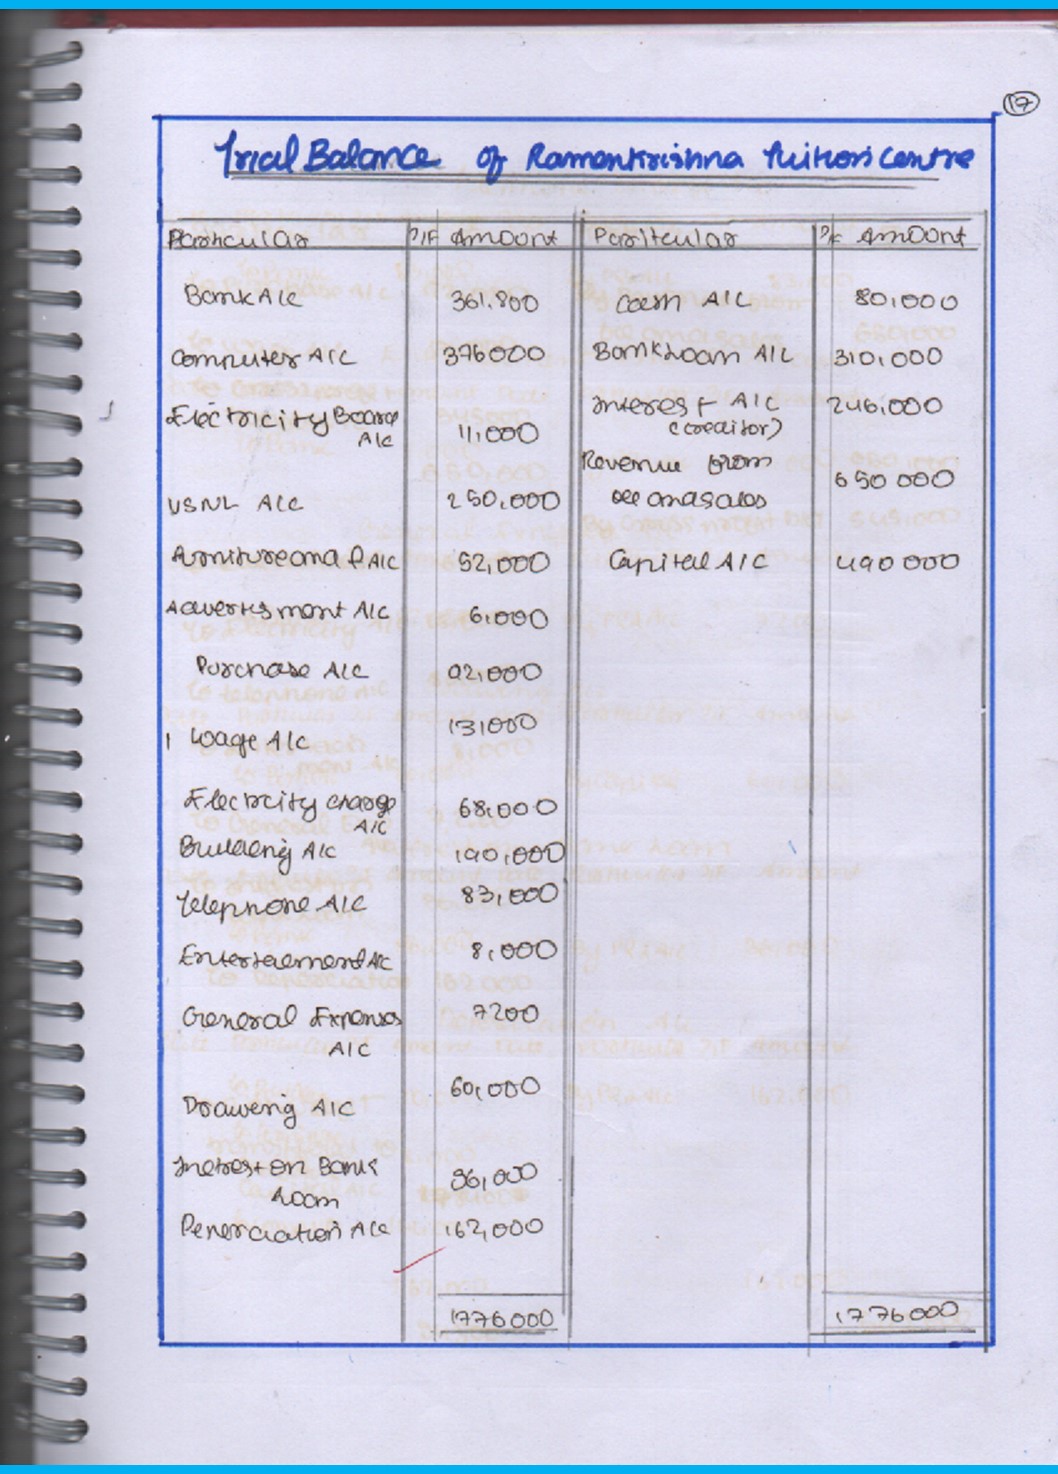 17
Trial Balance of Ramankrishna Tuition Centre
Particular J/F Amount Particular J/F Amount
Bank A/c 361.800 Cash A/C 80,000
Computer A/C 376000 Bank Loan A/C 310,000
Electricity Board A/c 11,000 Interest A/C (creditor) 246,000
VSNL A/C 250,000 Revenue from 650 000
Furniture and F A/C 52,000 Capital A/C 490 000
Advertisment A/C 6,000
Purchase A/C 92,000
Wage A/C 131000
Electricity charge A/C 68,000
Building A/C 190,000
Telephone A/C 83,000
Entertaiment A/C 8,000
General Expenses A/C 7200
Drawering A/C 60,000
Intrest on Bank Loan 36,000
A/C 162,000
1776000 1776000